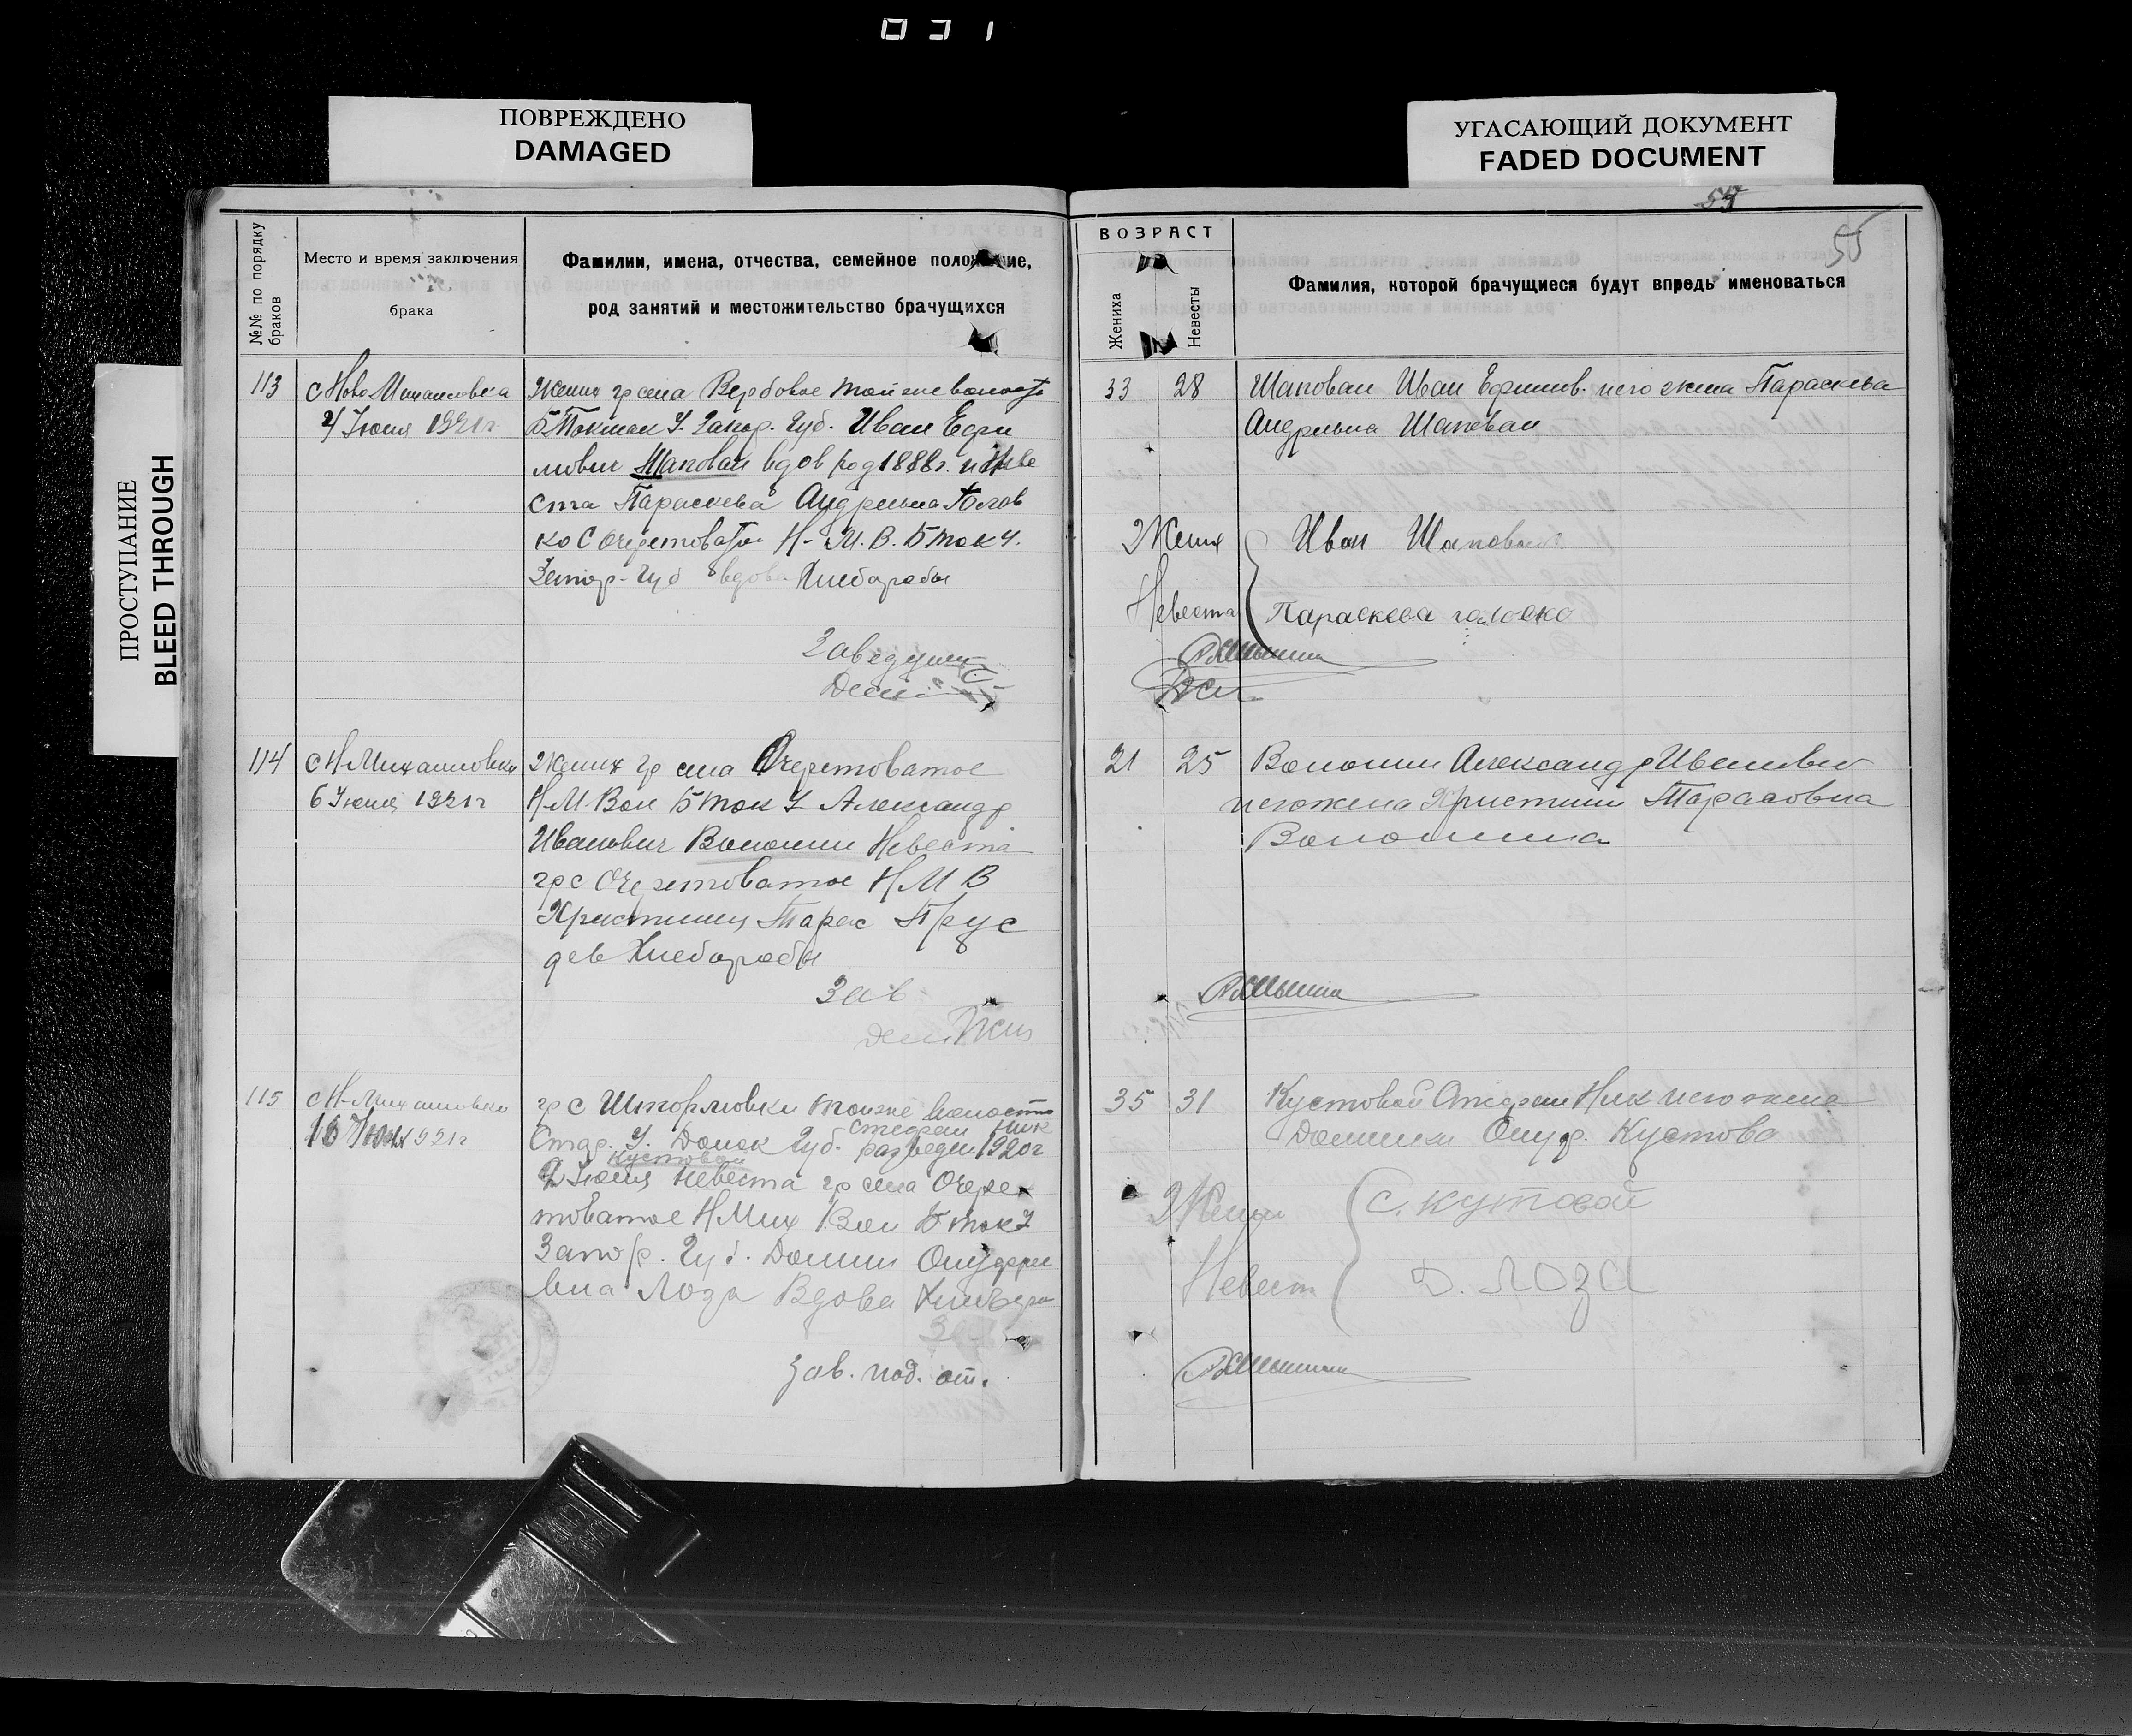 031
ПОВРЕЖДЕНО
DAMAGED
УГАСАЮЩИЙ ДОКУМЕНТ
FADED DOCUMENT
ПРОСТУПАНИЕ
BLEED THROUGH
№№ по порядку браков
Место и время заключения
брака
Фамилии, имена, отчества, семейное положение,
род занятий и местожительство брачущихся
113
с Ново Михайловка
4 Июня 1921 г.
Жених гр села Вербовое той же волости
Б. Токмак У. Запор. Губ. Иван Ефи
мович Шаповал вдов род 1888 г. и Неве
ста Параскева Андреевна Голов
ко С Очеретоватое Н-М. В. Б ток у.
Запор. Губ вдова Хлеборобы
Заведующ
114
с Н-Михайловка
6 Июня 1921 г
Жених гр села Очеретоватое
Н М Вол Б ток У Александр
Иванович Волошин Невеста
гр с Очеретоватое Н М В
Христиния Тарас Прус
дев Хлеборобы
Зав
115
с Н-Михайловка
16 Июня 1921 г
гр с волости
Стефан Ник
Стар. У. Донск Губ. разведен 1920 г
Кустовой
Июня Невеста гр села Очере
товатое Н Мих Вол Б ток У
Запор. Губ. Домни Онуфрие
вна Лоза Вдова
Зав. под. от.
54
55
ВОЗРАСТ
Жениха
Невесты
Фамилия, которой брачущиеся будут впредь именоваться
33 28 Шаповал Иван Ефимов. и его жена Параскева
Андреевна Шаповал
Жених Иван Шаповал
Невеста Параскева головко
21 25 Волошин Александр Иванович
и его жена Христиния Тарасовна
Волошина
35 31 Кустовой Стефан Ник и его жена
Домники Онуф. Кустова
Жених С. Кутовой
Невест Д. Лоза